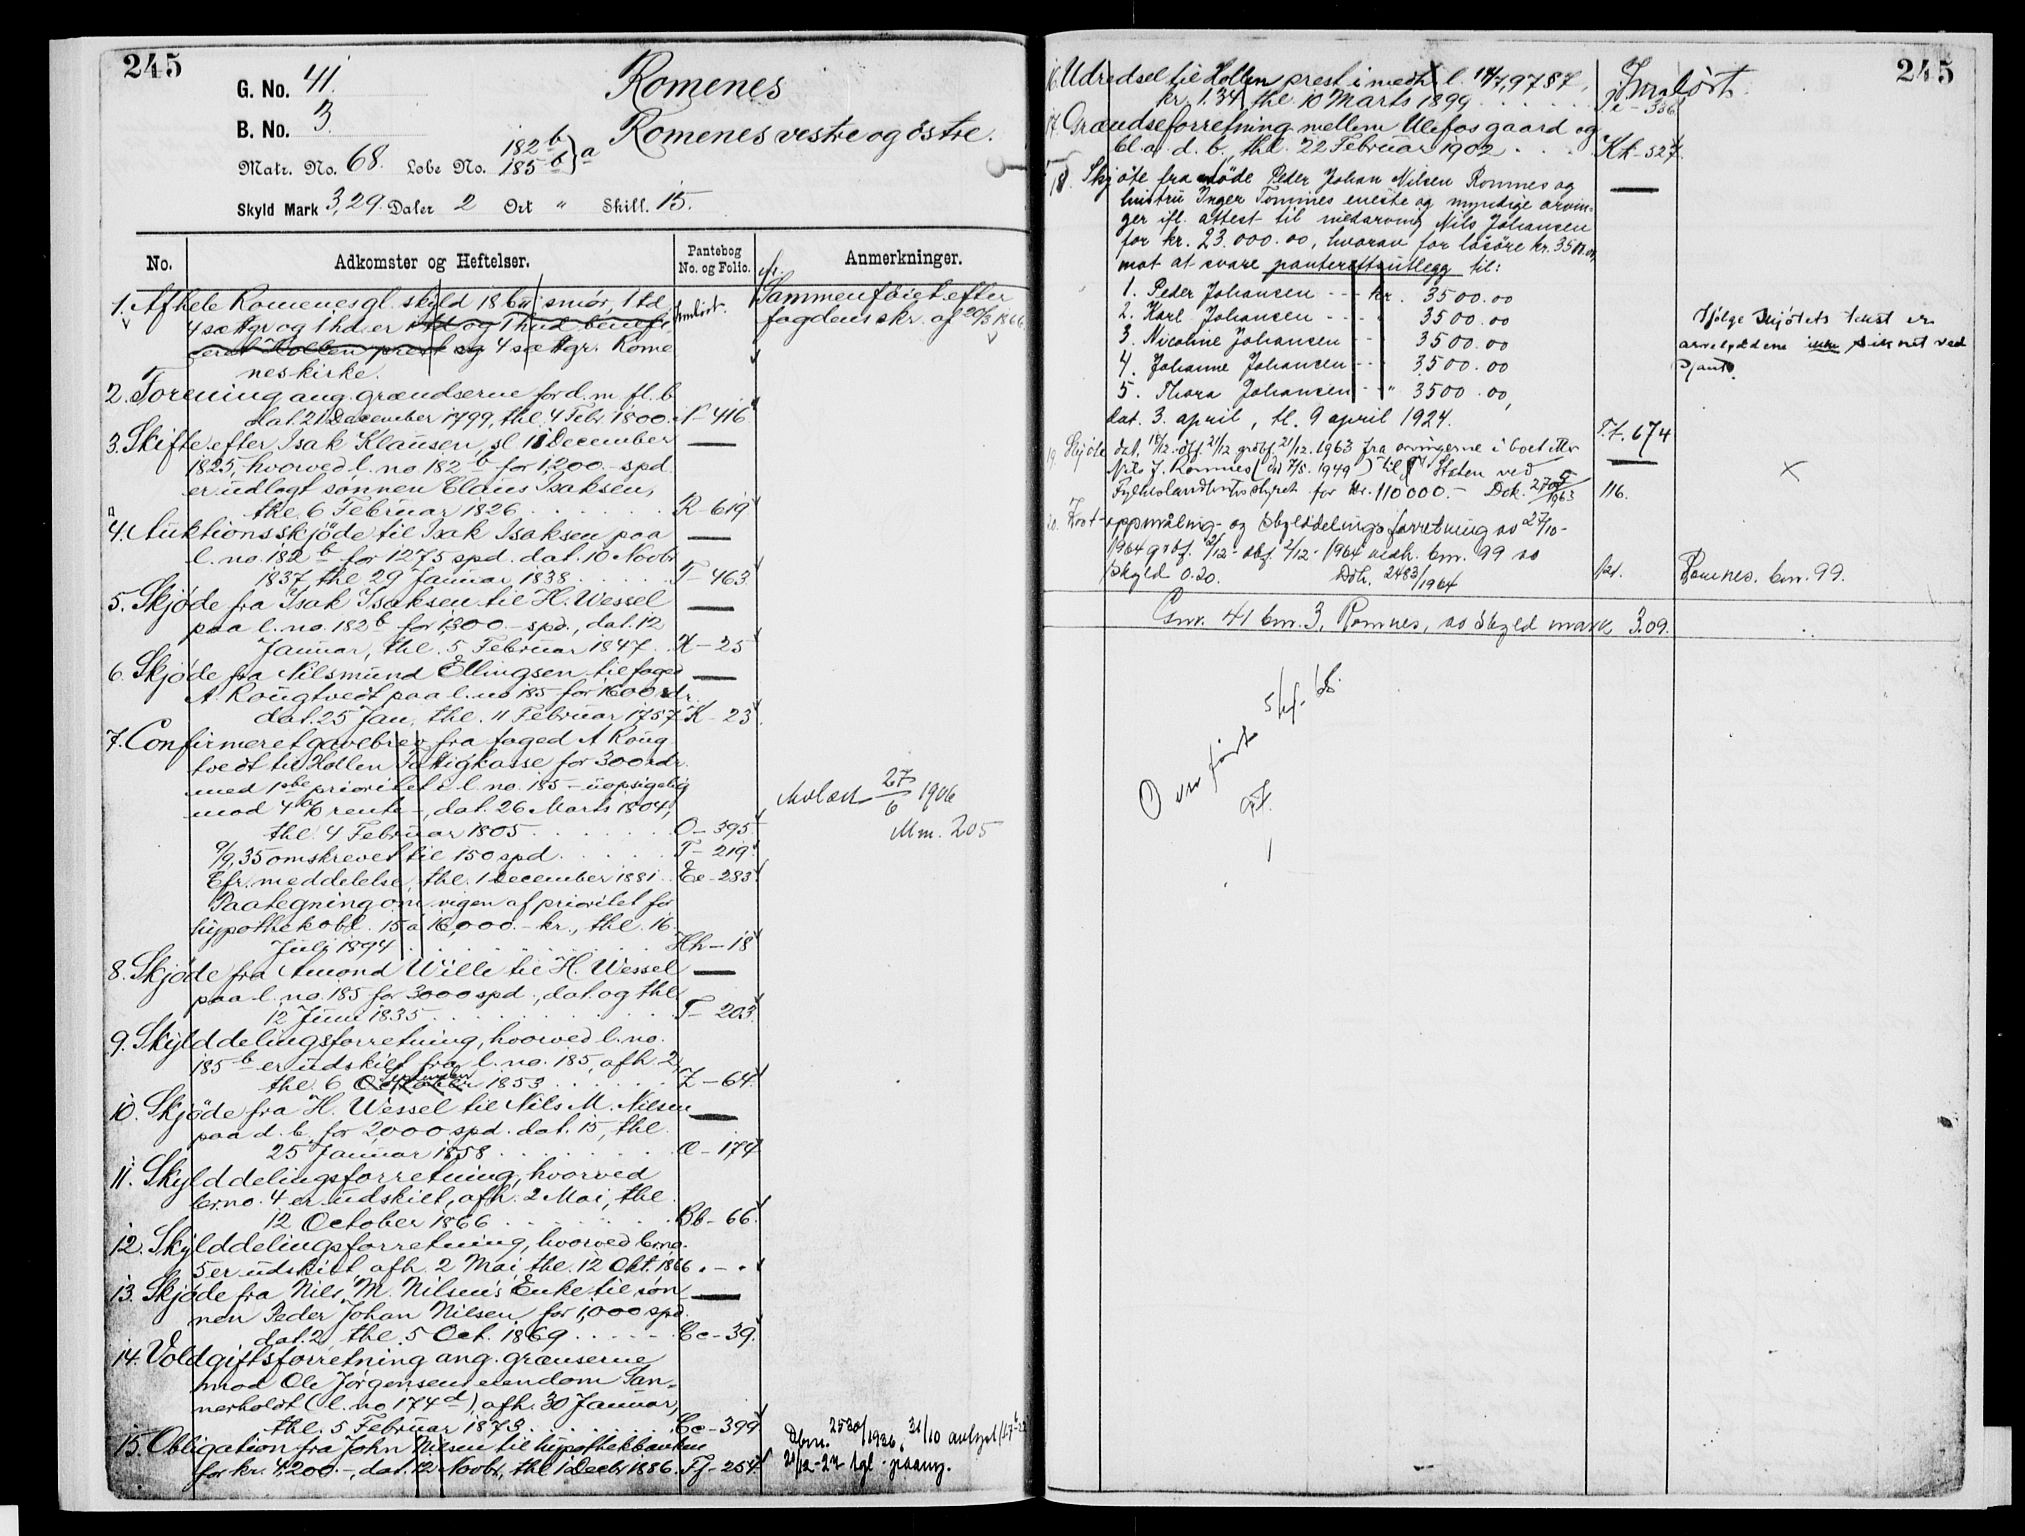 245
G. No. 41.
B. No. 3.
Matr. No. 68. Løbe No. 182 b 185 b } a
Skyld Mark 3,29. Daler 2 Ort " Skill. 15.
Romenes
Romenes vestre og østre.
No.
Adkomster og Heftelser.
Pantebog No. og Folio.
Anmerkninger.
1. Af hele Romenes gl. skyld
4 sæ tgr og 1 hd. er
4 sæ tgr. Rome
nes kirke.
Sammenføiet efter
fogdens skr. af 20/3 1866.
2. Forening ang. grændserne for d. m. fl. b.
dat. 21 December 1799, thl. 4 Febr. 1800. P-416
3. Skifte efter Isak Klausen, sl. 18 December
1825, hvorved l. no 182 b for 1,200.- spd.
er udlagt sønnen Claus Isaksen,
thl. 6 Februar 1826 . . . . . R-619
4. Auktionsskjøde til Isak Isaksen paa
l. no. 182 b for 1275 spd. dat. 10 Novbr.
1837, thl. 29 Januar 1838 . . . . T-463.
5. Skjøde fra Isak Isaksen til H. Wessel
paa l. no. 182 b for 1,300.- spd., dat. 12
Januar, thl. 5 Februar 1847. X-25
6. Skjøde fra Nilsmund Ellingsen til foged
A. Rougtvedt paa l. no 185 for 1600 rdr.
dat. 25 Jan, thl. 11 Februar 1757. K-23.
7. Confirmeret gavebrev fra foged A Roug
tvedt til Hollen Fattigkasse for 300 rdr.
med 1ste prioritet i l. no. 185 - uopsigelig
mod 4 % rente -, dat. 26 Marts 1804,
thl. 4 Februar 1805 . . . . . O-395.
9/9. 35 omskrevet til 150 spd. . . . . T-219.
Cfr. meddelelse, thl. 1 December 1881. Ee-283.
Paategning om vigen af prioritet for
hypothekobl. 15 a 16,000.- kr., thl. 16
Juli 1894 . . . . . Hh-18
Avlæst 27/6 1906
Mm. 205
8. Skjøde fra Amond Wille til H. Wessel
paa l. no. 185 for 3000 spd., dat. og thl.
12 Juni 1835 . . . . . T-203.
9. Skylddelingsforretning, hvorved l. no.
185 b er udskilt fra l. no. 185, afh. 2,
thl. 6 September 1853 . . . . . Z-64.
10. Skjøde fra H. Wessel til Nils M. Nilsen
paa d. b. for 2000 spd. dat. 15, thl.
25 Januar 1858 . . . . . Æ-174
11. Skylddelingsforretning, hvorved
br. no. 4 er udskilt, afh. 2 Mai, thl.
12 October 1866 . . . . . Bb-66.
12. Skylddelingsforretning, hvorved br. no.
5 er udskilt afh. 2 Mai thl. 12 Okt. 1866. " - "
13. Skjøde fra Nils M. Nilsens Enke til søn
nen Peder Johan Nilsen for 1,000 spd.
dat. 2, thl. 5 Oct. 1869 . . . . Cc-39.
14. Voldgiftsforretning ang. grænserne
mod Ole Jørgensens eiendom San-
nerholdt (l. no 174 d), afh. 30 Januar,
thl. 5 Februar 1873 . . . . . Cc-399
15. Obligation fra John Nilsen til hypothekbanken
for kr. 4,200.-, dat. 12 Novbr, thl. 1 Decbr 1886. Ff-254
Dbnr. 2530/1926, 31/10 avlyst
245
16. Udredsel til Hollen prest i medh. l. 14/7, 97 87,
kr. 1.34, thl. 10 Marts 1899 . . . . . . Ii-336
17. Grændseforretning mellem Ulefos gaard og
bl. a. d. b., thl. 22 Februar 1902 . . . Kk-527.
18. Skjøte fra døde Peder Johan Nilsen Romnes og
hustru Inger Tomines eneste og myndige arvin-
ger ifl. attest til medarving Nils Johansen
for kr. 23.000.00, hvorav for løsøre kr. 3500.00,
mot at svare panterettsutlegg til:
1. Peder Johansen - - - kr. 3500.00
2. Karl Johansen - - - " 3500.00
3. Nicoline Johansen - - " 3500.00
4. Johanne Johansen - - " 3500.00
5. Thora Johansen - - " 3500.00,
dat. 3. april, tl. 9 april 1924. T.t. 674
Ifølge skjøtets tekst er
arvelodderne ikke sikret ved
pant.
19. Skjøte dat. 18/12. dbf. 21/12 grbf. 21/12. 1963 fra arvingerne i boet etter
Nils J. Romnes (død 7/5. 1949) til Staten ved
Fylkeslandbruksstyret for kr. 110 000.- Dok. 2705/1963 116.
20. Kart-oppmåling- og skylddelingsforretning av 27/10-
1964 grbf. 2/12- dbf. 2/12- 1964 utsk. bnr. 99 av
skyld 0.20. Dok. 2483/1964
Romnes. bnr. 99.
Gnr. 41 bnr. 3, Romnes, av skyld mark 3.09.
Overført